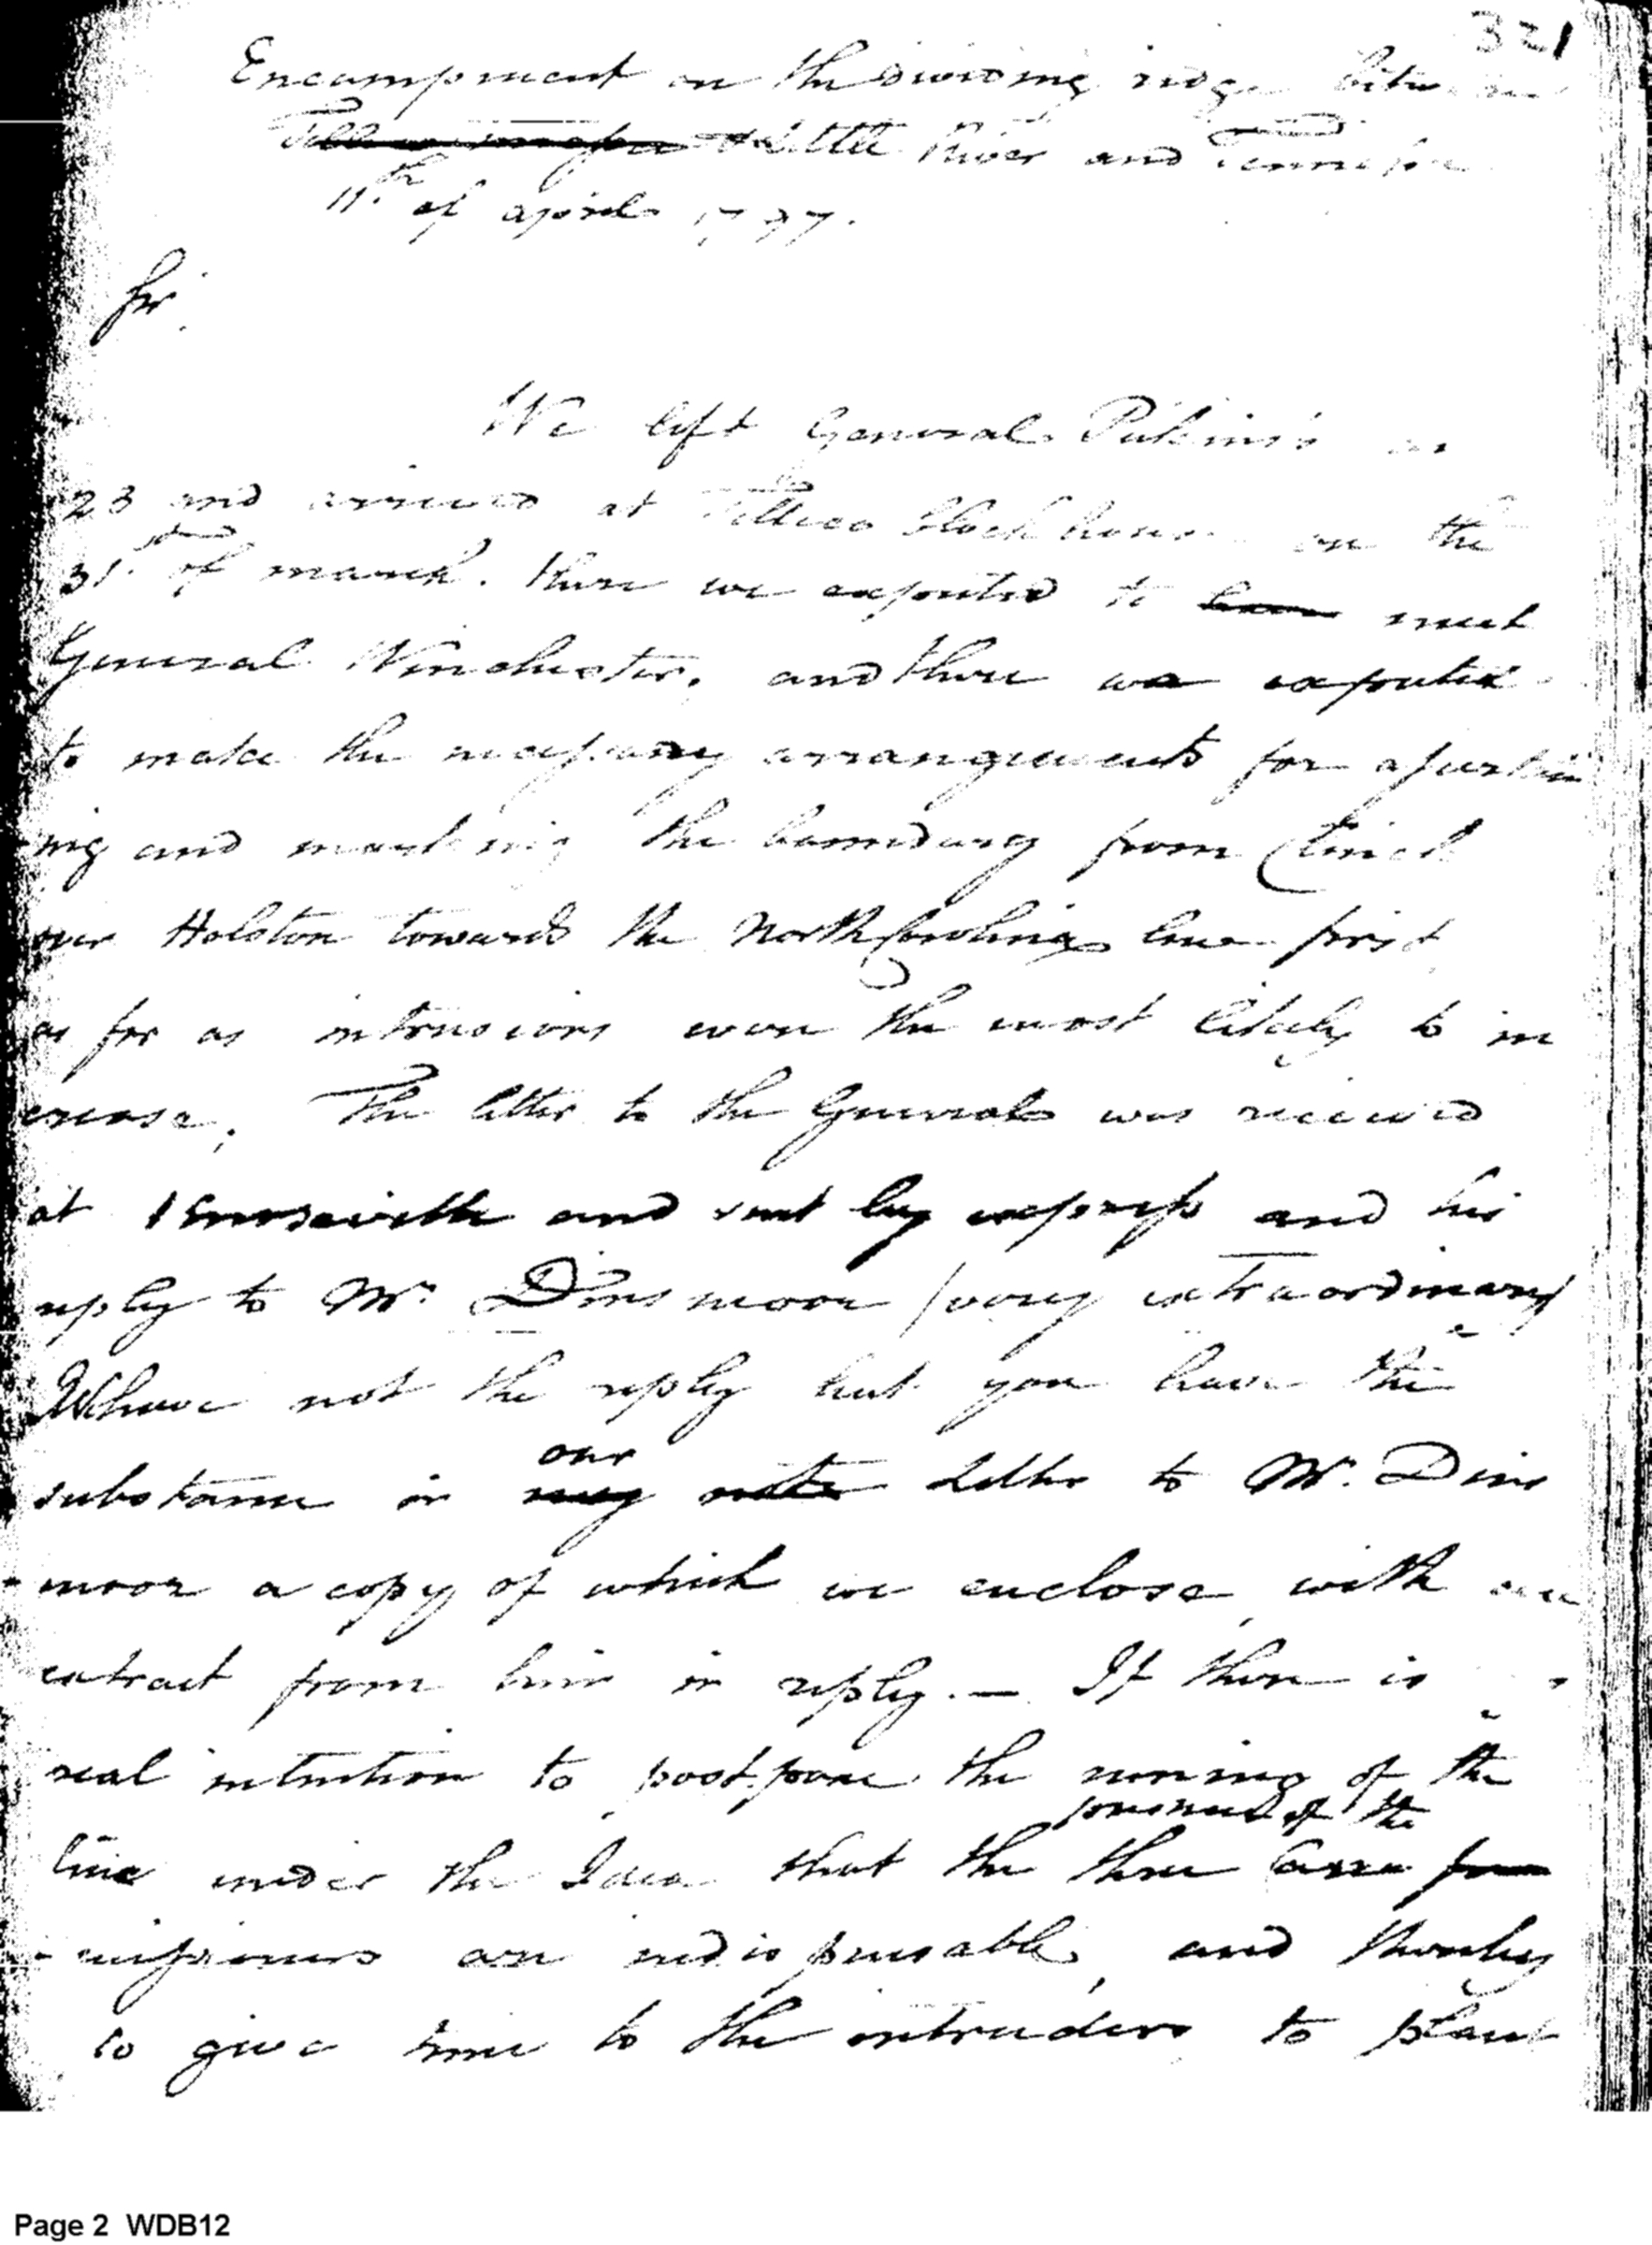 321
Encampment on the dividing ridge between
Little River and Tennessee
11th of april 1797.
Sir.
We left General Pickens's on
23 and arrived at Tellico block house on the
31st of march. there we expected to meet
General Winchester, and there we expected
to make the necessary arrangements for ascertain
ing and marking the boundary from Clinch
over Holston towards the North Carolina line first
as far as intrusions were the most likely to in
crease. The letter to the General was received
at Knoxville and sent by express and his
reply to Mr. Dinsmoor /very extraordinary/
We have not the reply but you have the
substance in our
my note letter to Mr. Dins
moor a copy of which we enclose, with an
extract from him in reply. — If there is a
real intention to postpone the running of the
line under the Idea that the presence of the
three Com
missioners are indispensable, and thereby
to give time to the intruders to plant
Page 2 WDB12